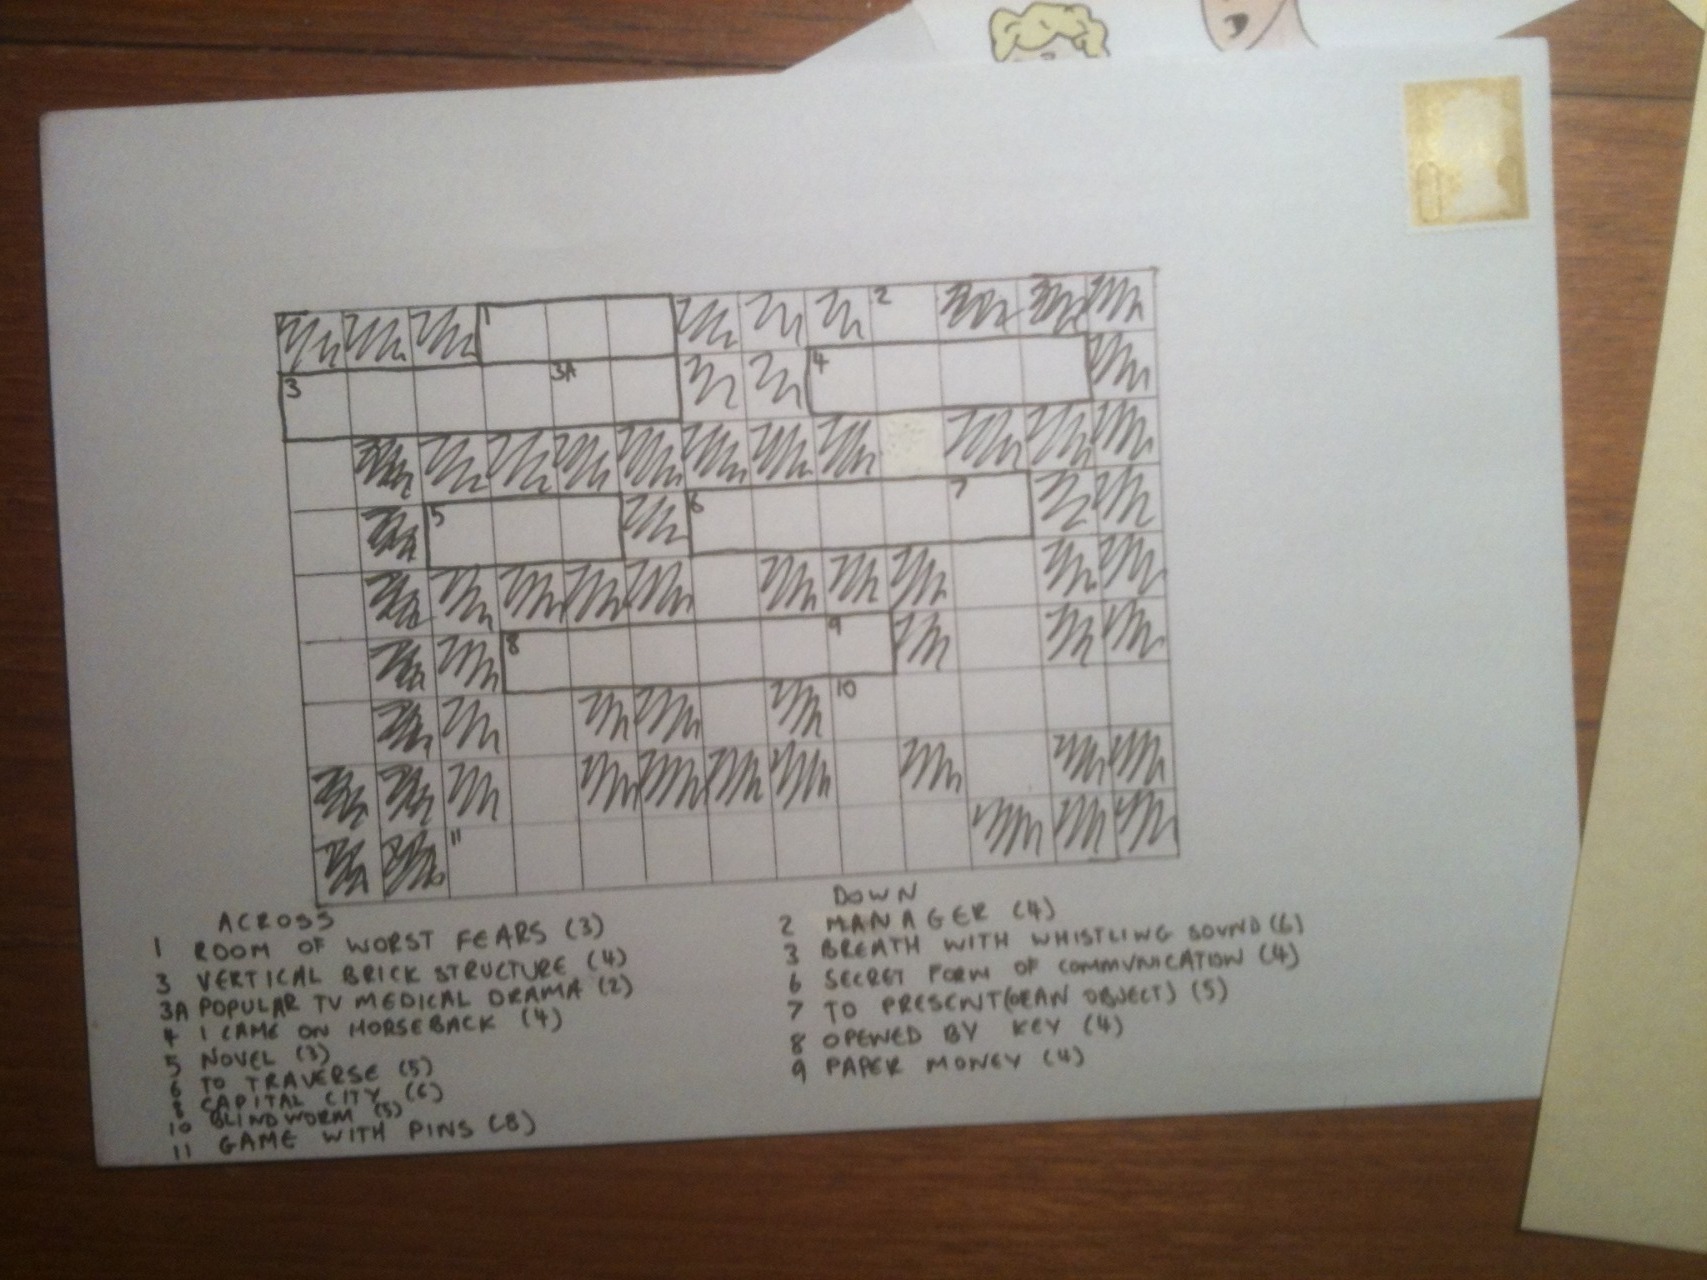 1
2
3
3A
4
5
6
7
8
9
10
11
ACROSS
1 ROOM OF WORST FEARS (3)
3 VERTICAL BRICK STRUCTURE (4)
3A POPULAR TV MEDICAL DRAMA (2)
4 I CAME ON HORSEBACK (4)
5 NOVEL (3)
6 TO TRAVERSE (5)
8 CAPITAL CITY (6)
10 BLINDWORM (5)
11 GAME WITH PINS (8)
DOWN
2 MANAGER (4)
3 BREATH WITH WHISTLING SOUND (6)
6 SECRET FORM OF COMMUNICATION (4)
7 TO PRESENT (OF AN OBJECT) (5)
8 OPENED BY KEY (4)
9 PAPER MONEY (4)